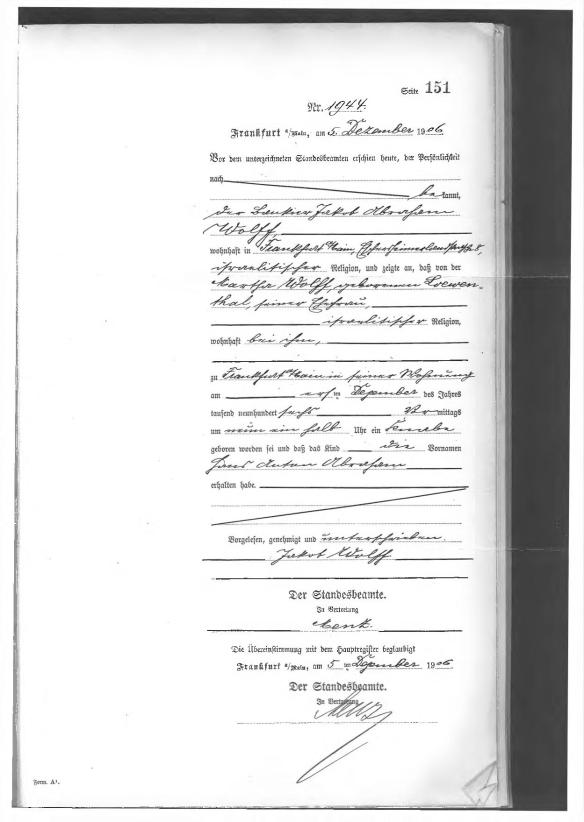 Seite 151
Nr. 1944.
Frankfurt a/Main, am 5. Dezember 1906
Vor dem unterzeichneten Standesbeamten erschien heute, der Persönlichkeit
nach be kannt,
der Bankier Jakob Abraham
Wolff,
wohnhaft in Frankfurt a/Main, Eschersheimerlandstraße
israelitischer Religion, und zeigte an, daß von der
Martha Wolff, geborenen Loewen-
thal, seiner Ehefrau,
israelitischer Religion,
wohnhaft bei ihm,
zu Frankfurt a/Main in seiner Wohnung
am ersten Dezember des Jahres
tausend neunhundert sechs Vor mittags
um neun ein halb Uhr ein Knabe
geboren worden sei und daß das Kind die Vornamen
Hans Anton Abraham
erhalten habe.
Vorgelesen, genehmigt und unterschrieben.
Jakob Wolff
Der Standesbeamte.
In Vertretung
Menz.
Die Übereinstimmung mit dem Hauptregister beglaubigt
Frankfurt a/Main, am 5 ten Dezember 1906
Der Standesbeamte.
In Vertretung
Menz
Form. A¹.